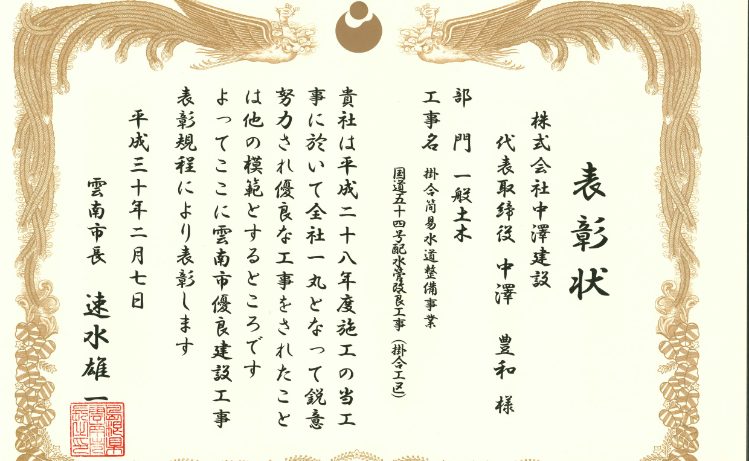 表彰状
株式会社中澤建設
代表取締役 中澤 豊和 様
部門 一般土木
工事名 掛合簡易水道整備事業
国道五十四号配水管改良工事(掛合工区)
貴社は平成二十八年度施工の当工
事に於いて全社一丸となって鋭意
努力され優良な工事をされたこと
は他の模範とするところです
よってここに雲南市優良建設工事
表彰規程により表彰します
平成三十年二月七日
雲南市長 速水雄一